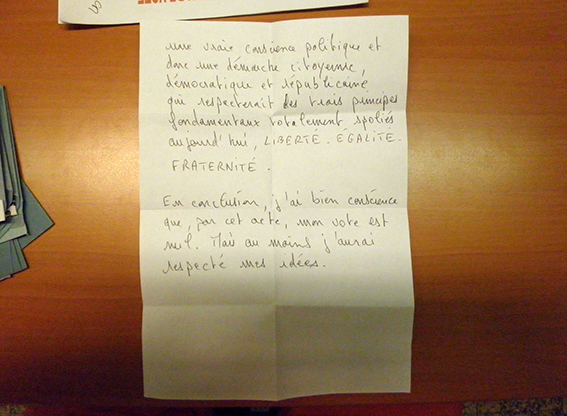 une vraie conscience politique et
donc une démarche citoyenne,
démocratique et républicaine
qui respecterait les trois principes
fondamentaux totalement spoliés
aujourd'hui, LIBERTÉ. ÉGALITÉ.
FRATERNITÉ.
En conclusion, j'ai bien conscience
que, par cet acte, mon vote est
nul. Mais au moins j'aurai
respecté mes idées.